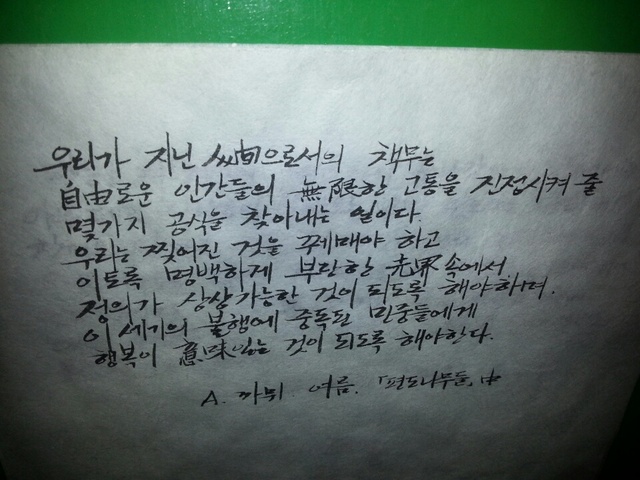 우리가 지닌 人間으로서의 책무는
自由로운 인간들의 無限한 고통을 진정시켜 줄
몇가지 공식을 찾아내는 일이다.
우리는 찢어진 것을 꿰매야 하고
이토록 명백하게 부당한 世界속에서
정의가 상상가능한 것이 되도록 해야하며.
이 세기의 불행에 중독된 민중들에게
행복이 意味있는 것이 되도록 해야한다.
A. 까뮈. 여름.「편도나무들」中